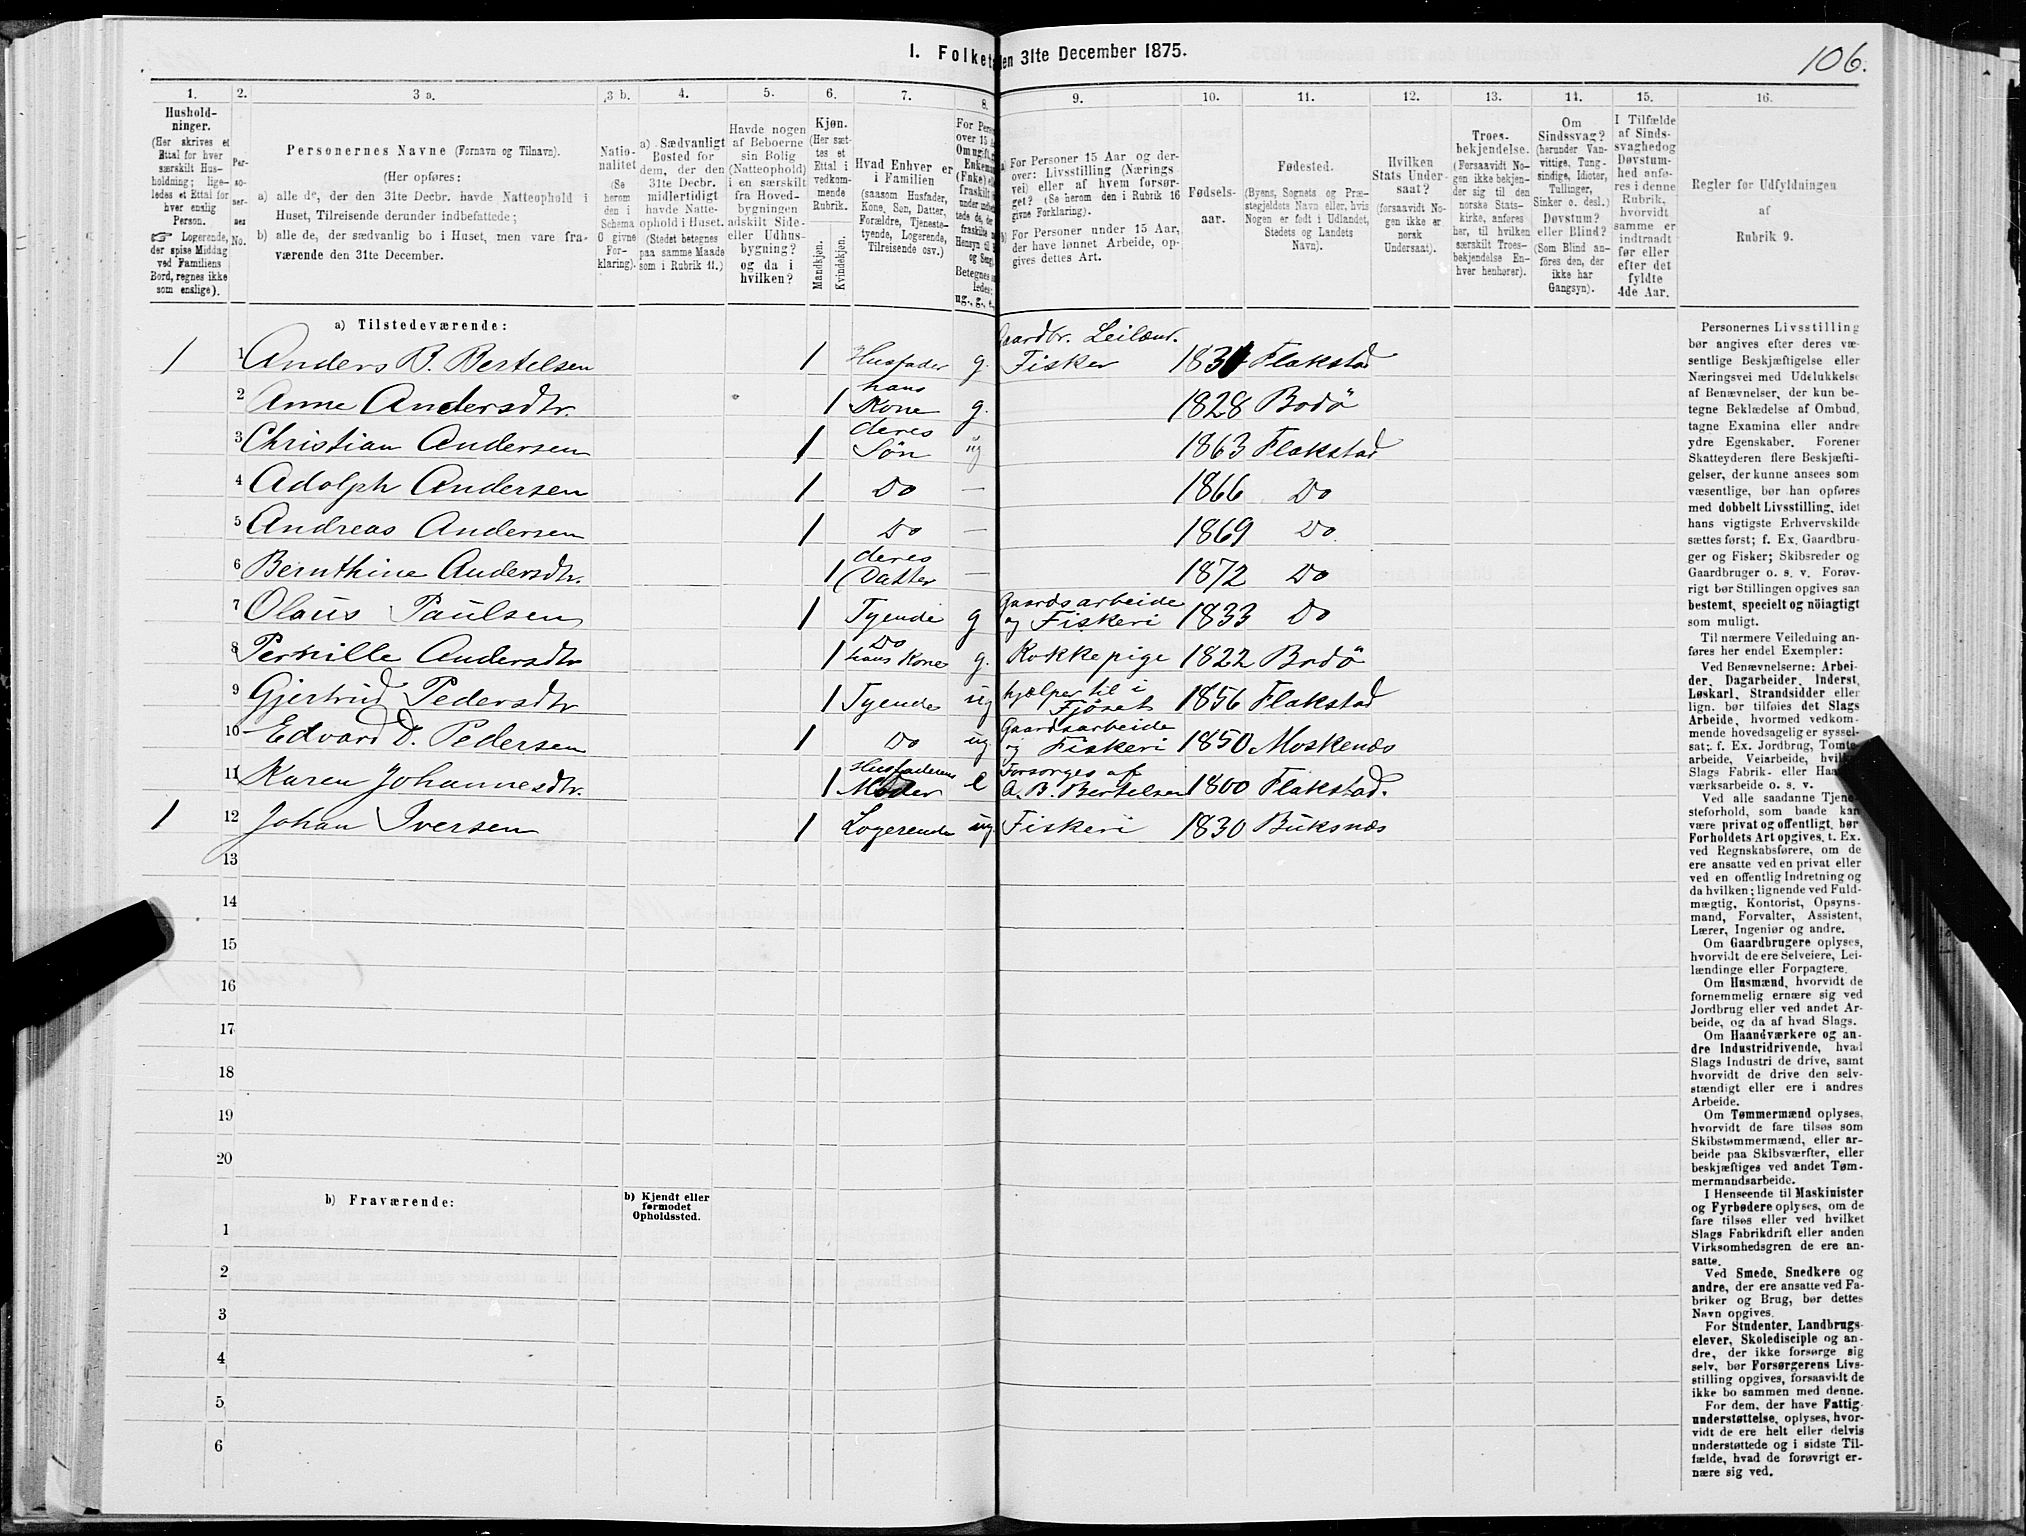 1. Folket en 31te December 1875.
106.
1. 2. 3 a. 3 b. 4. 5. 6. 7. 8. 9. 10. 11. 12. 13. 14. 15. 16.
Hushold-
ninger.
(Her skrives et
Ettal for hver
særskilt Hus-
holdning; lige-
ledes et Ettal for
hver enslig
Person.
☞ Logerende,
der spise Middag
ved Familiens
Bord, regnes ikke
som enslige).
Per-
so-
ner-
nes
No.
Personernes Navne (Fornavn og Tilnavn).
(Her opføres:
a) alle de, der den 31te Decbr. havde Natteophold i
Huset, Tilreisende derunder indbefattede;
b) alle de, der sædvanlig bo i Huset, men vare fra-
værende den 31te December.
Natio-
nalitet
(Se
herom
den i
Schema
6 givne
For-
klaring).
a) Sædvanligt
Bosted for
dem, der den
31te Decbr.
midlertidigt
havde Natte-
ophold i Huset.
(Stedet betegnes
paa samme Maade
som i Rubrik 11.)
Havde nogen
af Beboerne
sin Bolig
(Natteophold)
i en særskilt
fra Hoved-
bygningen
adskilt Side-
eller Udhus-
bygning?
og da i
hvilken?
Kjøn.
(Her sæt-
tes et
Ettal i
vedkom-
mende
Rubrik.
Mandkjøn.
Kvindekjøn.
Hvad Enhver er
i Familien
(saasom Husfader,
Kone, Søn, Datter,
Forældre, Tjeneste-
tyende, Logerende,
Tilreisende osv.)
For Pers
over 15 A
Om ugift,
Enkema
(Fnke) el
fraskilt
under indbe
tede de, der
fraskilte
Hensyn til
og Seng
Betegnes s
ledes:
ug., g., e.,
a) For Personer 15 Aar og der-
over: Livsstilling (Nærings
vei) eller af hvem forsør-
get? (Se herom den i Rubrik 16
givne Forklaring).
b) For Personer under 15 Aar,
der have lønnet Arbeide, op-
gives dettes Art.
Fødsels-
aar.
Fødested.
(Byens, Sognets og Præ-
stegjeldets Navn eller, hvis
Nogen er født i Udlandet,
Stedets og Landets
Navn).
Hvilken
Stats Under-
saat?
(forsaavidt No-
gen ikke er
norsk
Undersaat).
Troes-
bekjendelse.
(Forsaavidt No-
gen ikke bekjen-
der sig til den
norske Stats-
kirke, anføres
her, til hvilken
særskilt Troes-
bekjendelse En-
hver henhører).
Om
Sindssvag?
(herunder Van-
vittige, Tung-
sindige, Idioter,
Tullinger,
Sinker o. desl.)
Døvstum?
eller Blind?
(Som Blind an-
føres den, der
ikke har
Gangsyn).
I Tilfælde
af Sinds-
svaghedog
Døvstum-
hed anfø-
res i denne
Rubrik,
hvorvidt
samme er
indtraadt
før eller
efter det
fyldte
4de Aar.
Regler for Udfyldningen
af
Rubrik 9.
a) Tilstedeværende:
1 1 Anders B. Bertelsen 1 Husfader g. Gaardbr. Leilænd. Fisker 1831 Flakstad
2 Anne Andersdtr. 1 hans Kone g. 1828 Bodö
3 Christian Andersen 1 deres Søn ug 1863 Flakstad
4 Adolph Andersen 1 Do — 1866 Do
5 Andreas Andersen 1 Do — 1869 Do
6 Bernthine Andersdtr. 1 deres Datter — 1872 Do
7 Olaus Paulsen 1 Tyende g Gaardsarbeide og Fiskeri 1833 Do
8 Pernille Andersdtr 1 Do hans Kone g. Kokkepige 1822 Bodö
9 Gjertrud Pedersdtr 1 Tyende ug hjælper til i Fjöset 1856 Flakstad
10 Edvard D. Pedersen 1 Do ug. Gaardsarbeide og Fiskeri 1850 Moskenæs
11 Karen Johannesdtr. 1 Husfaderens Moder e Forsorges af A. B. Bertelsen 1800 Flakstad.
1 12 Johan Iversen 1 Logerende ug. Fiskeri 1830 Buksnæs
13
14
15
16
17
18
19
20
b) Fraværende:
b) Kjendt eller
formodet
Opholdssted.
1
2
3
4
5
6
Personernes Livsstilling
bør angives efter deres væ-
sentlige Beskjæftigelse eller
Næringsvei med Udelukkelse
af Benævnelser, der kun be-
tegne Beklædelse af Ombud,
tagne Examina eller andre
ydre Egenskaber. Forener
Skatteyderen flere Beskjæfti-
gelser, der kunne ansees som
væsentlige, bør han opføres
med dobbelt Livsstilling, idet
hans vigtigste Erhvervskilde
sættes først; f. Ex. Gaardbru-
ger og Fisker; Skibsreder og
Gaardbruger o. s. v. Forøv-
rigt bør Stillingen opgives saa
bestemt, specielt og nöiagtigt
som muligt.
Til nærmere Veiledning an-
føres her endel Exempler:
Ved Benævnelserne: Arbei-
der, Dagarbeider, Inderst,
Løskarl, Strandsidder eller
lign. bør tilføies det Slags
Arbeide, hvormed vedkom-
mende hovedsagelig er syssel-
sat; f. Ex. Jordbrug, Tomte-
arbeide, Veiarbeide, hvilket
Slags Fabrik- eller Haand-
værksarbeide o. s. v.
Ved alle saadanne Tjene-
steforhold, som baade kan
være privat og offentligt, bør
Forholdets Art opgives, t. Ex.
ved Regnskabsførere, om de
ere ansatte ved en privat eller
ved en offentlig Indretning og
da hvilken; lignende ved Fuld-
mægtig, Kontorist, Opsyns-
mand, Forvalter, Assistent,
Lærer, Ingeniør og andre.
Om Gaardbrugere oplyses,
hvorvidt de ere Selveiere, Lei-
lændinge eller Forpagtere.
Om Husmænd, hvorvidt de
fornemmelig ernære sig ved
Jordbrug eller ved andet Ar-
beide, og da af hvad Slags.
Om Haandværkere og an-
dre Industridrivende, hvad
Slags Industri de drive, samt
hvorvidt de drive den selv-
stændigt eller ere i andres
Arbeide.
Om Tømmermænd oplyses,
hvorvidt de fare tilsøs som
Skibstømmermænd, eller ar-
beide paa Skibsværfter, eller
beskjæftiges ved andet Tøm-
mermandsarbeide.
I Henseende til Maskinister
og Fyrbødere oplyses, om de
fare tilsøs eller ved hvilket
Slags Fabrikdrift eller anden
Virksomhedsgren de ere an-
satte.
Ved Smede, Snedkere og
andre, der ere ansatte ved Fa-
briker og Brug, bør dettes
Navn opgives.
For Studenter, Landbrugs-
elever, Skoledisciple og an-
dre, der ikke forsørge sig
selv, bør Forsørgerens Livs-
stilling opgives, forsaavidt de
ikke bo sammen med denne.
For dem, der have Fattig-
understøttelse, oplyses, hvor-
vidt de ere helt eller delvis
understøttede og i sidste Til-
fælde, hvad de forøvrigt er-
nære sig ved.